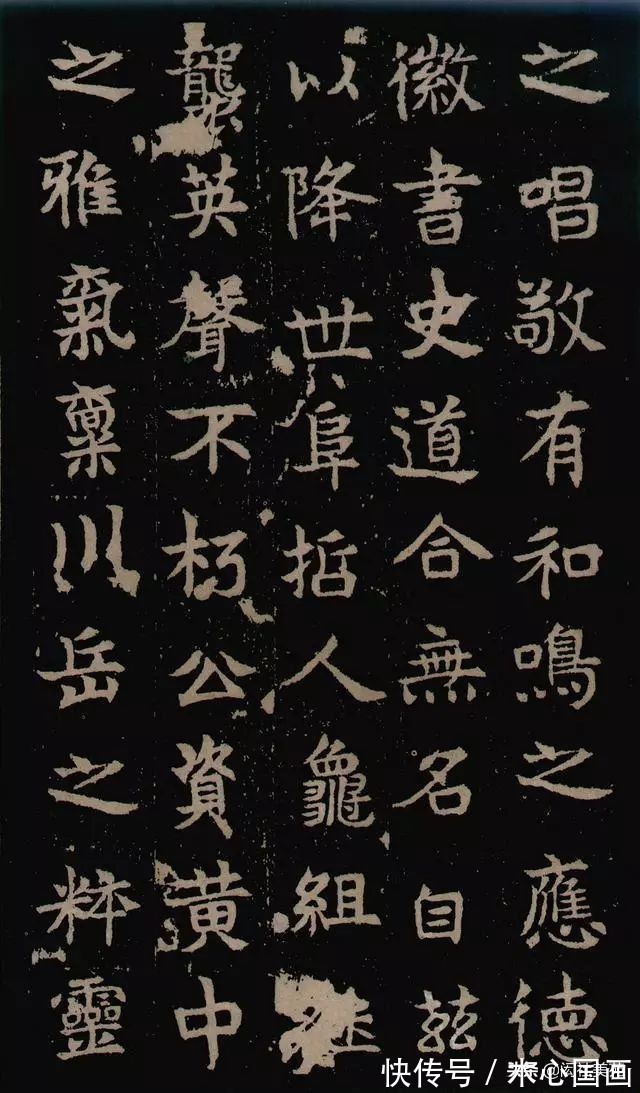 之唱敬有和鳴之應德
徽書史道合無名自茲
以降世阜哲人龜組継
襲英聲不朽公資黄中
之雅氣稟川岳之粋靈
快传号／米心国画